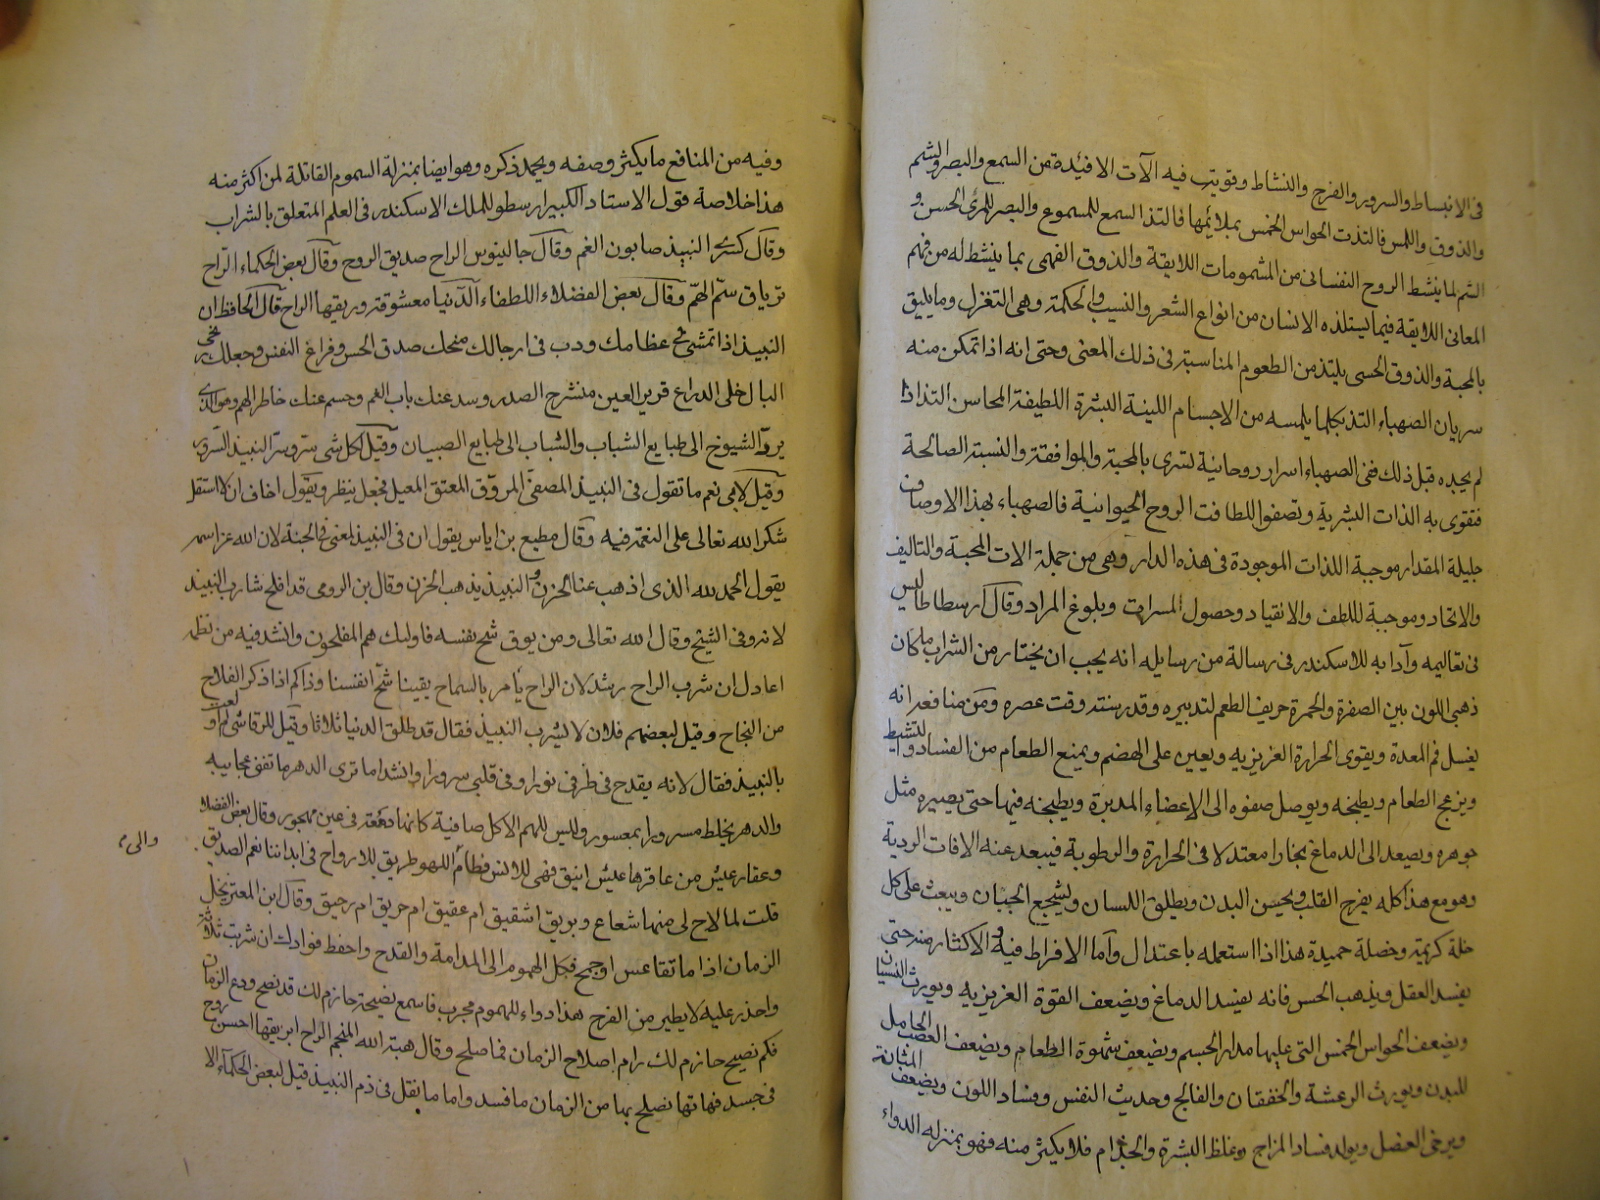 فى الانبساط والسرور والفرح والنشاط وقويت فيه الآت الافئدة من السمع والبصر والشم
والذوق واللمس فالتذت الحواس الخمس بملائمها فالتذ السمع للمسموع والبصر للمرئ الحسن و
الشم لما ينشط الروح النفسانى من المشمومات اللايقة والذوق الفهمى بما ينشط له من فهم
المعانى اللايقة فيما يستلذه الانسان من انواع الشعر والنسيب والحكمة وهى التغزل وما يليق
بالمحبة والذوق الحسى يلتذ من الطعوم المناسبة فى ذلك المعنى وحتى انه اذا تمكن منه
سريان الصهباء التذ بكلما يلمسه من الاجسام اللينة البشرة اللطيفة المحاسن التذاذا
لم يجده قبل ذلك ففى الصهباء اسرار روحانية لتسرى بالمحبة والموافقة والنسبة الصالحة
فتقوى به الذات البشرية وتصفوا للطافت الروح الحيوانية فالصهباء بهذا الاوصاف
جليلة المقدار موجبة اللذات الموجودة فى هذه الدار وهى من جملة الات المحبة والتاليف
والاتحاد وموجبة للطف والانقياد وحصول المسرات وبلوغ المراد وقال ارسطاطاليس
فى تعاليمه وآدابه للاسكندر فى رسالة من رسايله انه يجب ان يختار من الشراب ما كان
ذهبى اللون بين الصفرة والحمرة حريف الطعم لتدبيره وقدر سنته وقت عصره ومن منافعه انه
يغسل فم المعدة ويقوى الحرارة الغريزيه ويعين على الهضم ويمنع الطعام من الفساد و
ويزعج الطعام ويطبخه ويوصل صفوه الى الاعضاء المدبرة ويطبخه فيها حتى يصيره مثل
جوهره ويصعد الى الدماغ بخارا معتدلا فى الحرارة والرطوبة فيبعد عنه الافات الردية
وهو مع هذا كله يفرح القلب ويحسن البدن ويطلق اللسان ويشجع الجبان ويبعث على كل
خلة كريمة وخصلة حميدة هذا اذا استعمله باعتدال وآما الافراط فيه والاكثار منه حتى
يفسد العقل ويذهب الحس فانه يفسد الدماغ ويضعف القوة الغريزيه ويورث النسيان
ويضعف الحواس الخمس التى عليها مدار الجسم ويضعف شهوة الطعام ويضعف العصب الحامل
للبدن ويورث الرعشة والخفقان والفالج وحديث النفس وفساد اللون ويضعف المثانة
ويرخى العضل ويولد فساد المزاج وغلظ البشرة والجذام فلا يكثر منه فهو بمنزله الدواء
وفيه من المنافع ما يكثر وصفه ويحمد ذكره وهو ايضا بمنزلة السموم القاتلة لمن اكثر منه
هذا خلاصة قول الاستاد الكبير ارسطو للملك الاسكندر فى العلم المتعلق بالشراب
وقال كسرى النبيذ صابون الغم وقال جالينوس الراح صديق الروح وقال بعض الحكماء الراح
ترياق ستم الهم وقال بعض الفضلاء اللطفاء الدنيا معشوقة وريقها الراح قال الحافظ ان
النبيذ اذا تمشى فى عظامك ودب فى ارجالك منحك صدق الحس وفراغ النفس وجعلك رخى
البال خلى الدراع قرير العين منشرح الصدر وسد عنك باب الغم وحسم عنك خاطر الهم وهو الذى
يرد الشيوخ الى طبايع الشباب والشباب الى طبايع الصبيان وقيل لكل شى سر وسر النبيذ السرور
وقيل لابى نعم ما تقول فى النبيذ المصفى المروق المعتق المعيل فجعل ينظر ويقول اخاف ان لا استقل
شكر الله تعالى على النعمة فيه وقال مطيع بن اياس يقول ان فى النبيذ لمعنى فى الجنة لان الله عز اسمه
يقول الحمد لله الذى اذهب عنا الحزن والنبيذ يذهب الحزن وقال بن الرومى قد افلح شارب النبيذ
لانه وفى الشح وقال الله تعالى ومن يوق شح نفسه فاوليك هم المفلحون وانشد فيه من نظمه
اعاذل ان شرب الراح رشد لان الراح يأمر بالسماح يقينا شح انفسنا وذاكم اذا ذكر الفلاح
من النجاح وقيل لبعضهم فلان لا يشرب النبيذ فقال قد طلق الدنيا ثلاثا وقيل للرقاشى لم ولعت
بالنبيذ فقال لانه يقدح فى طرفى نورا وفى قلبى سرورا وانشد اما ترى الدهر ما تفنى عجايبه
والدهر يخلط مسرورا بمعسور وليس للهم الا كل صافية كانها دمعة فى عين مهجور وقال بعض الفضلاء
وعقار عيش من عاقرها عيش انيق فهى للانس نظام اللهو طريق للارواح فى ابداننا نعم الصديق
قلت لما لاح لى منها شعاع وبريق اشقيق ام عقيق ام حريق ام رحيق وقال ابن المعتز نخل
الزمان اذا ما تقاعس اوجمح فكل الهموم الى المدامة والقدح واحفظ فوادك ان شربت ثلاثة
واحذر عليه لا يطير من الفرح هذا دواء للهموم مجرب فاسمع نصيحة حازم لك قد نصح ودع الزمان
فكم نصيح حازم لك رام اصلاح الزمان فما صلح وقال هبة الله المنجم الراح ابريقها احسن روح
فى جسد فهاتها نصلح بها من الزمان ما فسد واما ما نقل فى ذم النبيذ قيل لبعض الحكماء الا